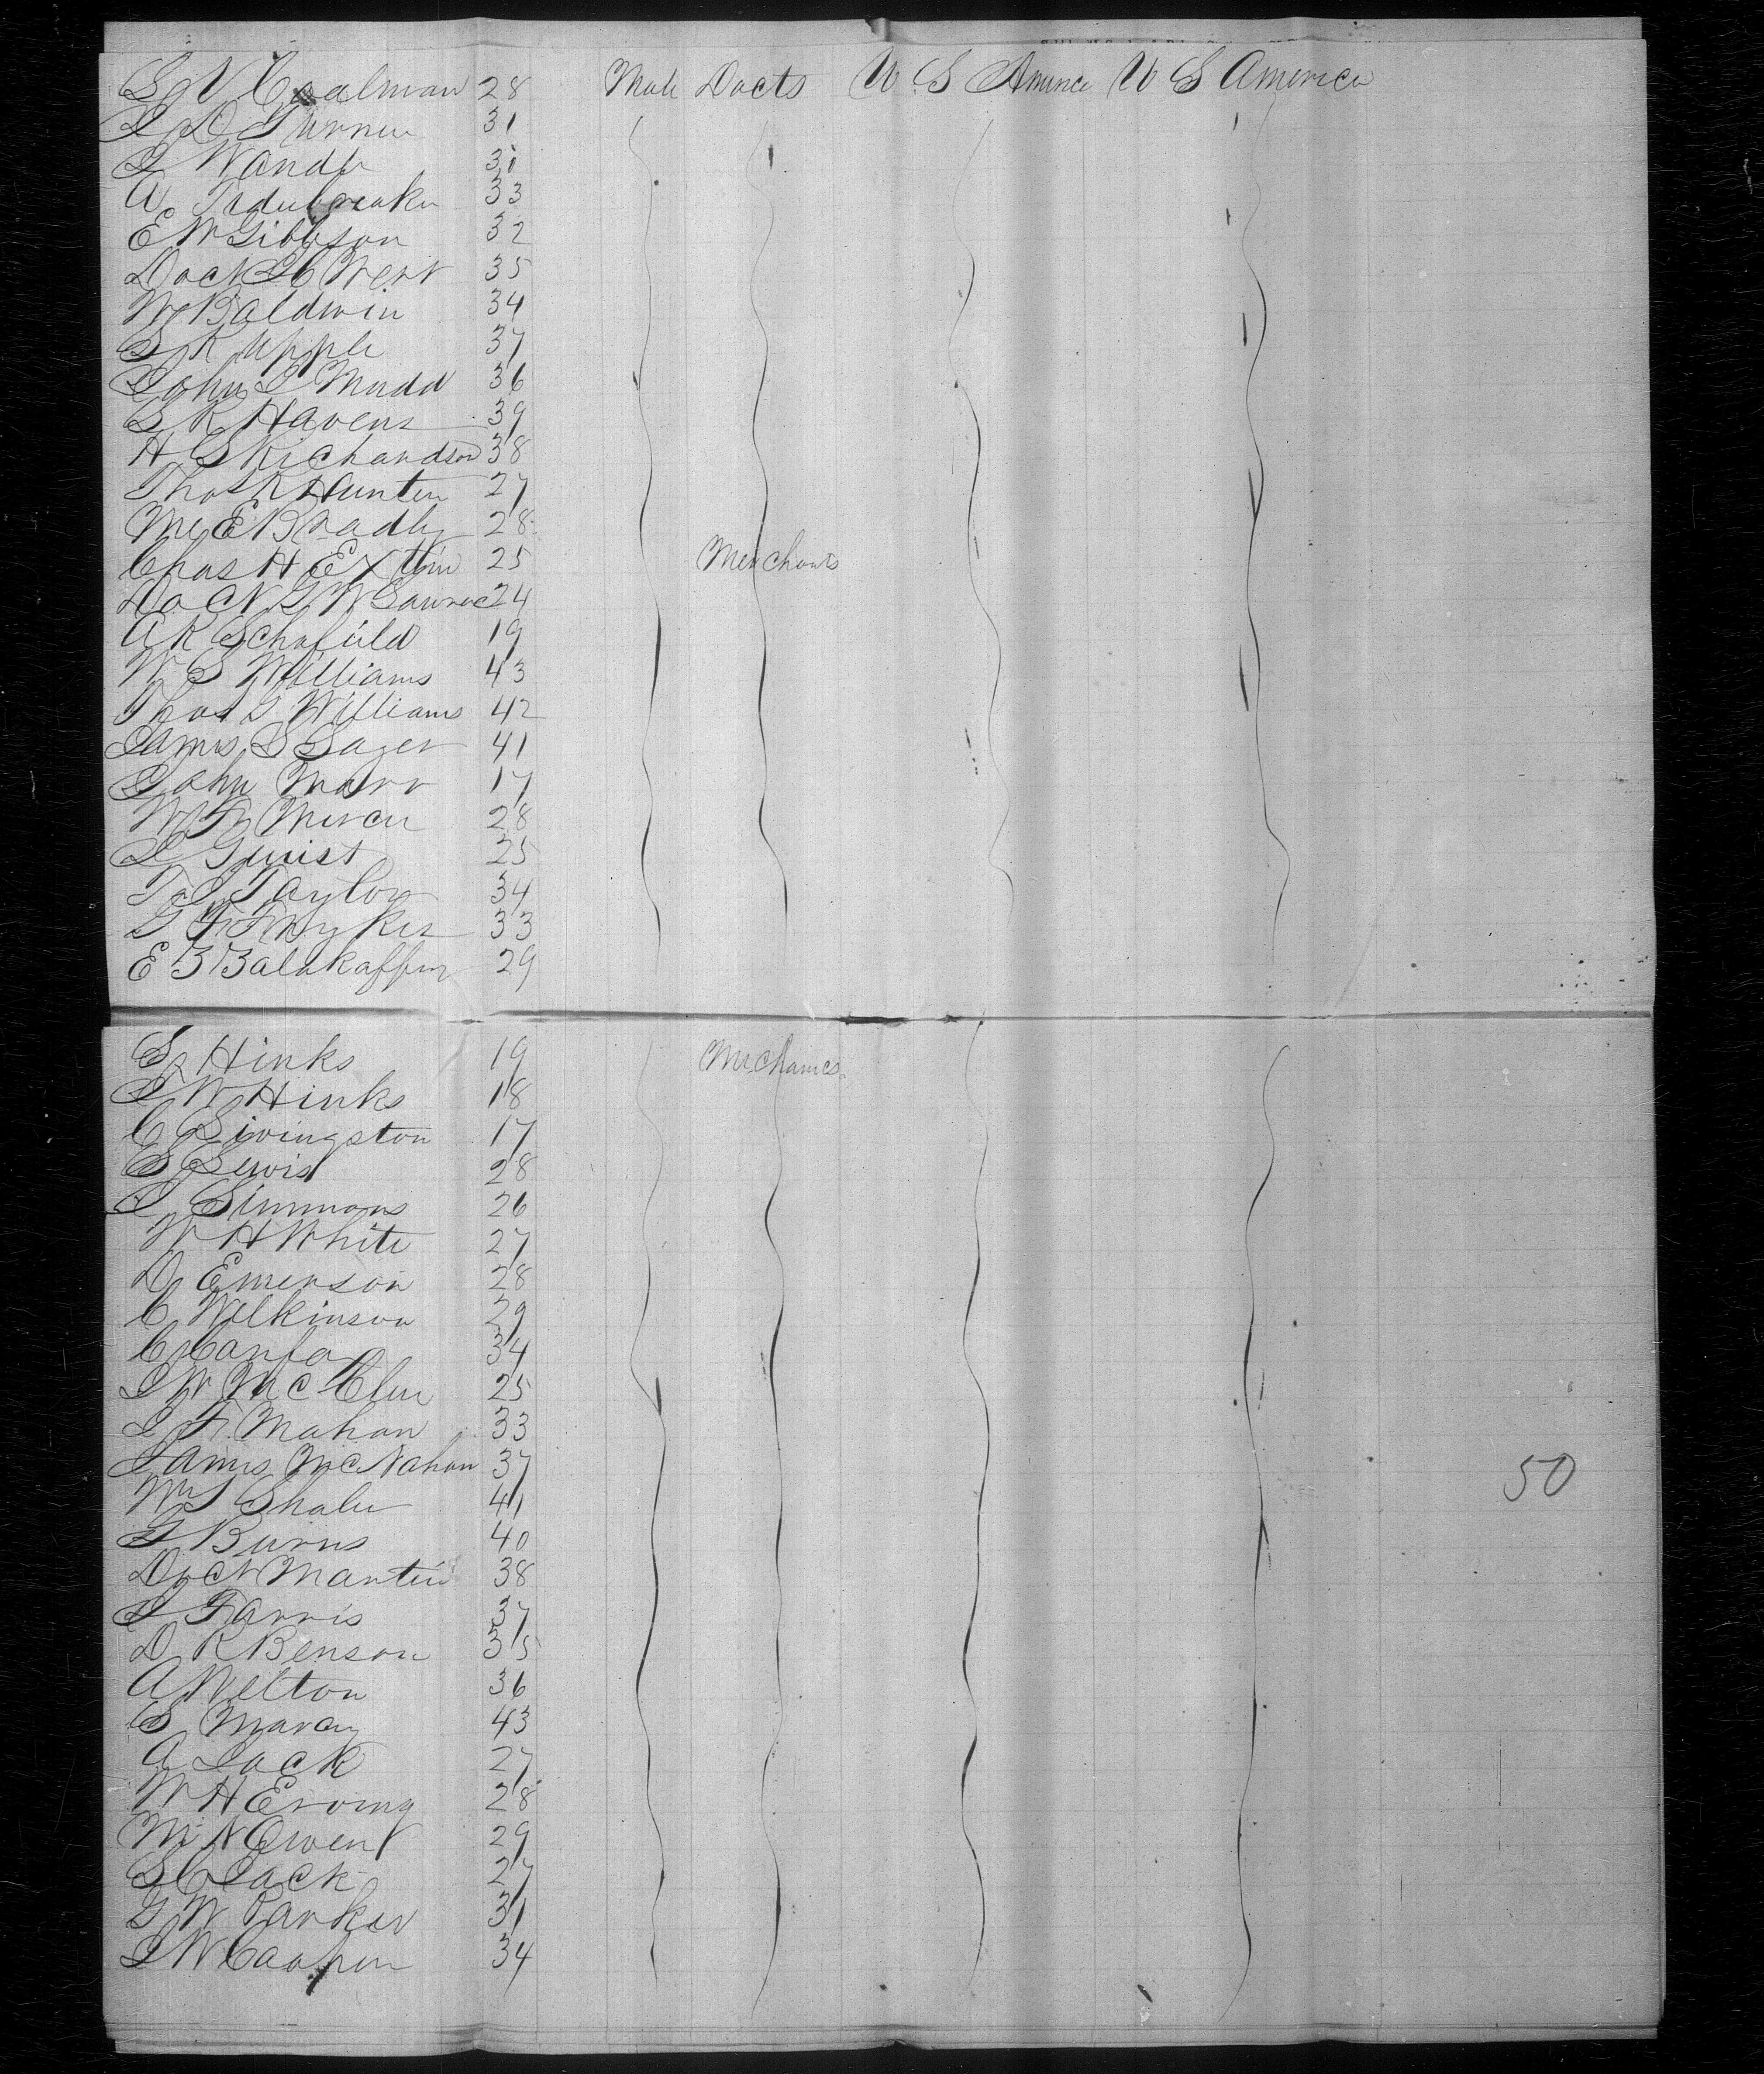 S V Coalman 28 Male Docts U S Amirica U S America
J D Turner 31
J Wandle 30
A 33
E W Gibbson 32
Dock L C West 35
W Baldwin 34
S K Upple 37
John T Mudd 36
S R Havens 39
H S Richardson 38
Thos R Hunter 27
Mc E Bradly 28
Chas H 25 Merchants
Doct G W 24
A R Schofield 19
W S Williams 43
Thos G Williams 42
James S Sager 41
John Marr 17
W F Mercer 28
J Guist 25
T J Taylor 34
G F 33
E B 29
S Hinks 19 Mechanics
J W Hinks 18
C Livingston 17
S Lewis 28
J Simmons 26
W H White 27
D Emerson 28
C Wilkinson 29
C 34
J W McClure 25
J F Mahan 33
James McNahan 37
Wm S Shaler 41 50
G Burns 40
Doct Martin 38
J Farris 37
D R Benson 35
A Welton 36
S Marcy 43
A Jack 27
W H Erving 28
M N Owen 29
S C Jack 27
G W Parker 31
J W Cooper 34